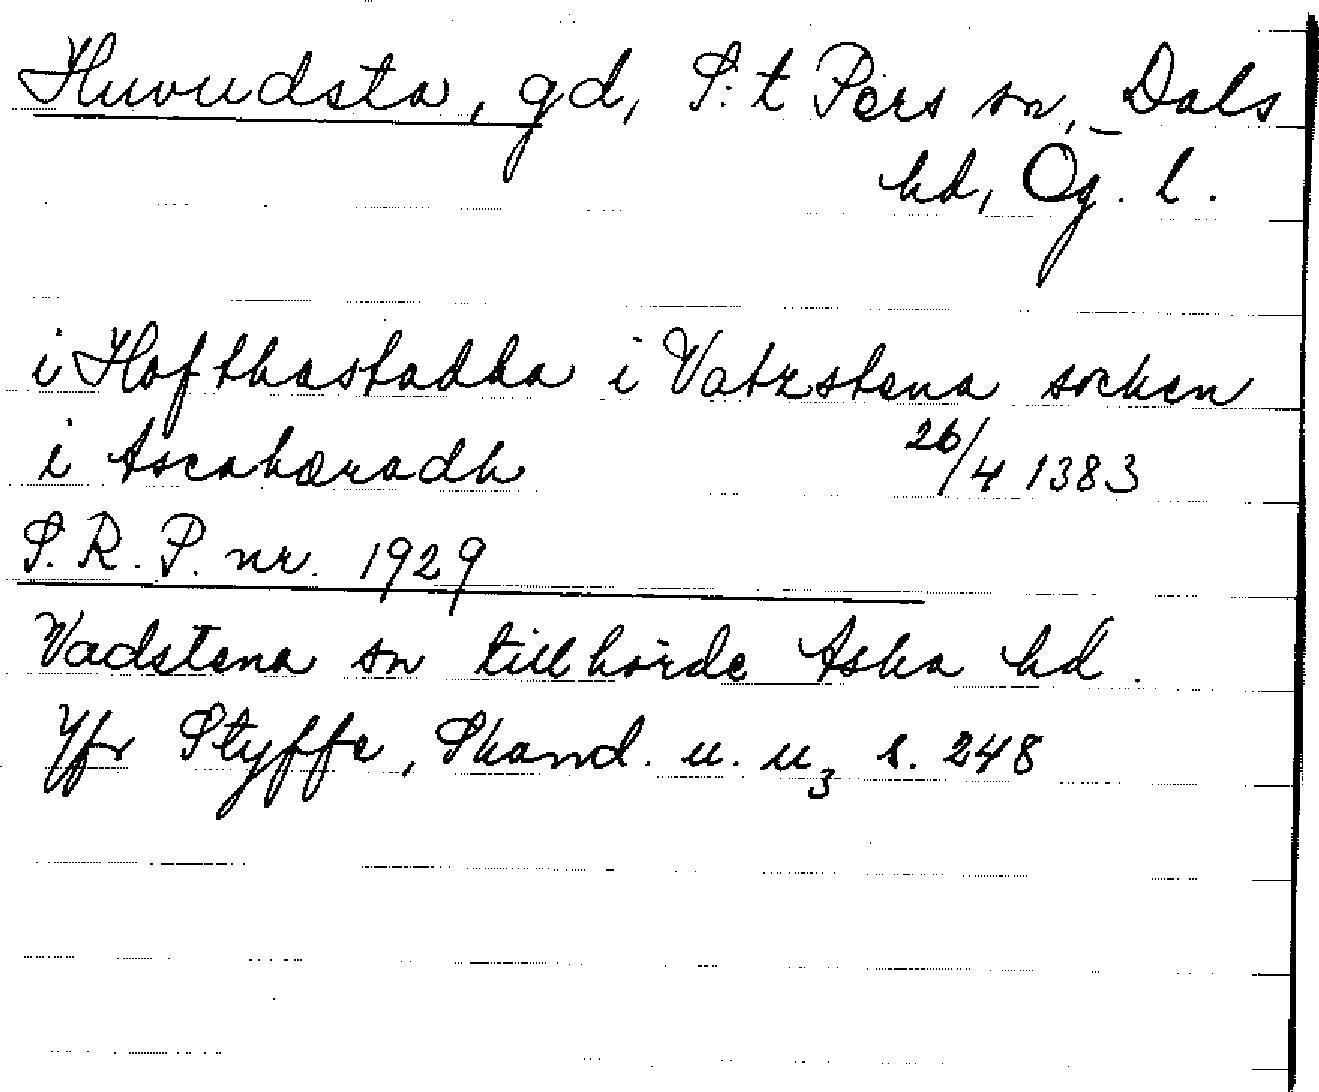 Huvudsta, gd, S:t Pers sn, Dals
hd, Ög. l.
i Hofthastadha i Vatzstena socken
i Ascahæradh 26/4 1383
S. R. P. nr. 1929
Vadstena sn tillhörde Aska hd.
Jfr Styffe, Skand. u. u3 s. 248